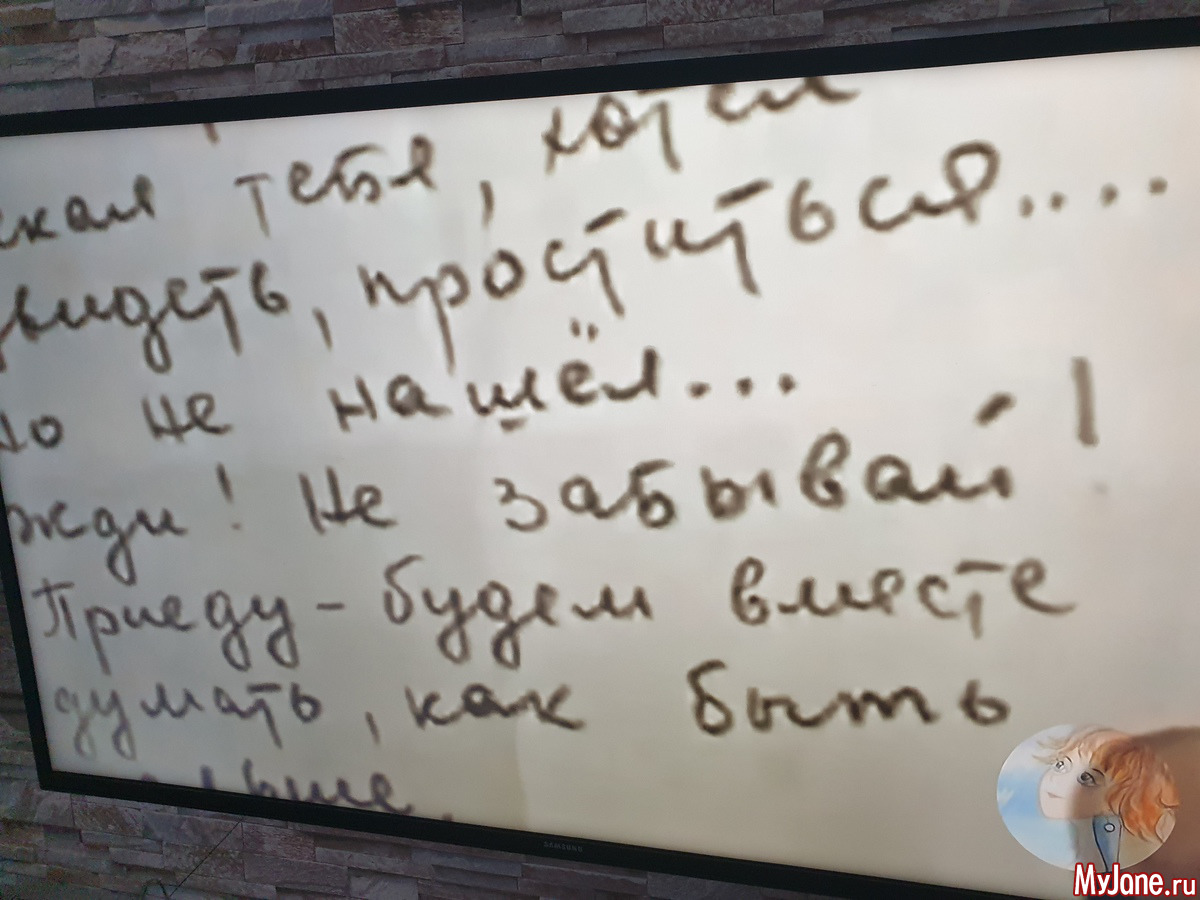 скал тебя, хотел
видеть, проститься....
но не нашёл...
жди! Не забывай!
Приеду - будем вместе
думать, как быть
SAMSUNG
MyJane.ru